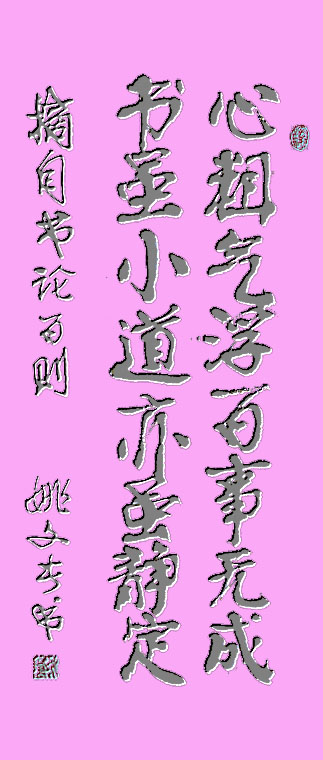 心粗气浮百事无成
书虽小道亦静定
摘自书论百则
姚文书